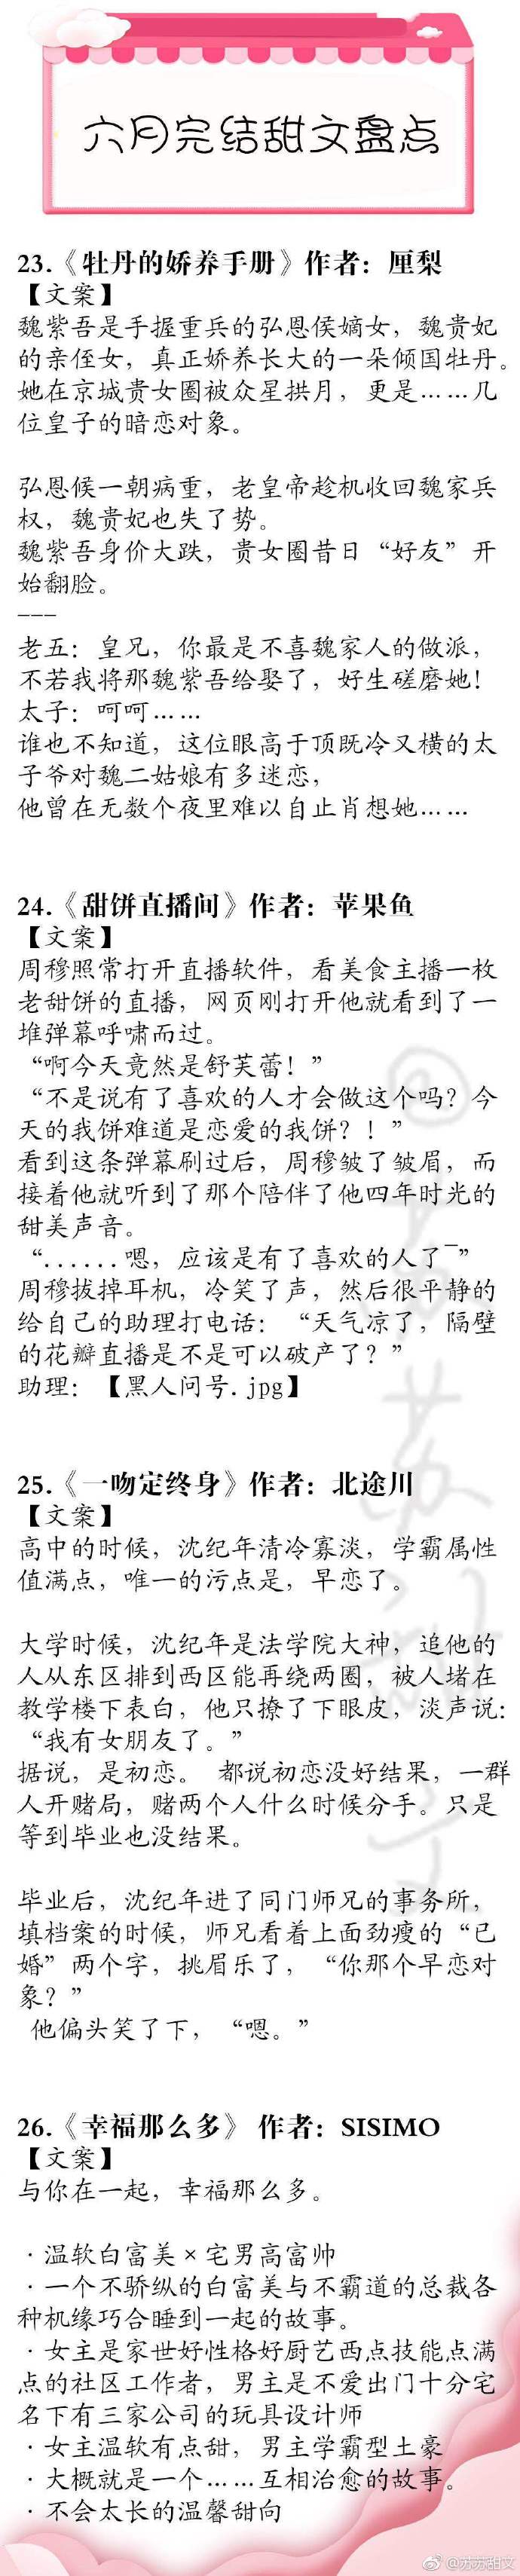 六月完结甜文盘点
23.《牡丹的娇养手册》作者：厘梨
【文案】
魏紫吾是手握重兵的弘恩侯嫡女，魏贵妃
的亲侄女，真正娇养长大的一朵倾国牡丹。
她在京城贵女圈被众星拱月，更是……几
位皇子的暗恋对象。
弘恩候一朝病重，老皇帝趁机收回魏家兵
权，魏贵妃也失了势。
魏紫吾身价大跌，贵女圈昔日“好友”开
始翻脸。
---
老五：皇兄，你最是不喜魏家人的做派，
不若我将那魏紫吾给娶了，好生磋磨她！
太子：呵呵……
谁也不知道，这位眼高于顶既冷又横的太
子爷对魏二姑娘有多迷恋，
他曾在无数个夜里难以自止肖想她……
24.《甜饼直播间》作者：苹果鱼
【文案】
周穆照常打开直播软件，看美食主播一枚
老甜饼的直播，网页刚打开他就看到了一
堆弹幕呼啸而过。
“啊今天竟然是舒芙蕾！”
“不是说有了喜欢的人才会做这个吗？今
天的我饼难道是恋爱的我饼？！”
看到这条弹幕刷过后，周穆皱了皱眉，而
接着他就听到了那个陪伴了他四年时光的
甜美声音。
“......嗯，应该是有了喜欢的人了¯”
周穆拔掉耳机，冷笑了声，然后很平静的
给自己的助理打电话：“天气凉了，隔壁
的花瓣直播是不是可以破产了？”
助理：【黑人问号.jpg】
25.《一吻定终身》作者：北途川
【文案】
高中的时候，沈纪年清冷寡淡，学霸属性
值满点，唯一的污点是，早恋了。
大学时候，沈纪年是法学院大神，追他的
人从东区排到西区能再绕两圈，被人堵在
教学楼下表白，他只撩了下眼皮，淡声说：
“我有女朋友了。”
据说，是初恋。 都说初恋没好结果，一群
人开赌局，赌两个人什么时候分手。只是
等到毕业也没结果。
毕业后，沈纪年进了同门师兄的事务所，
填档案的时候，师兄看着上面劲瘦的“已
婚”两个字，挑眉乐了，“你那个早恋对
象？”
他偏头笑了下，“嗯。”
26.《幸福那么多》 作者：SISIMO
【文案】
与你在一起，幸福那么多。
·温软白富美×宅男高富帅
·一个不骄纵的白富美与不霸道的总裁各
种机缘巧合睡到一起的故事。
·女主是家世好性格好厨艺西点技能点满
点的社区工作者，男主是不爱出门十分宅
名下有三家公司的玩具设计师
·女主温软有点甜，男主学霸型土豪
·大概就是一个……互相治愈的故事。
·不会太长的温馨甜向
@苏苏甜文